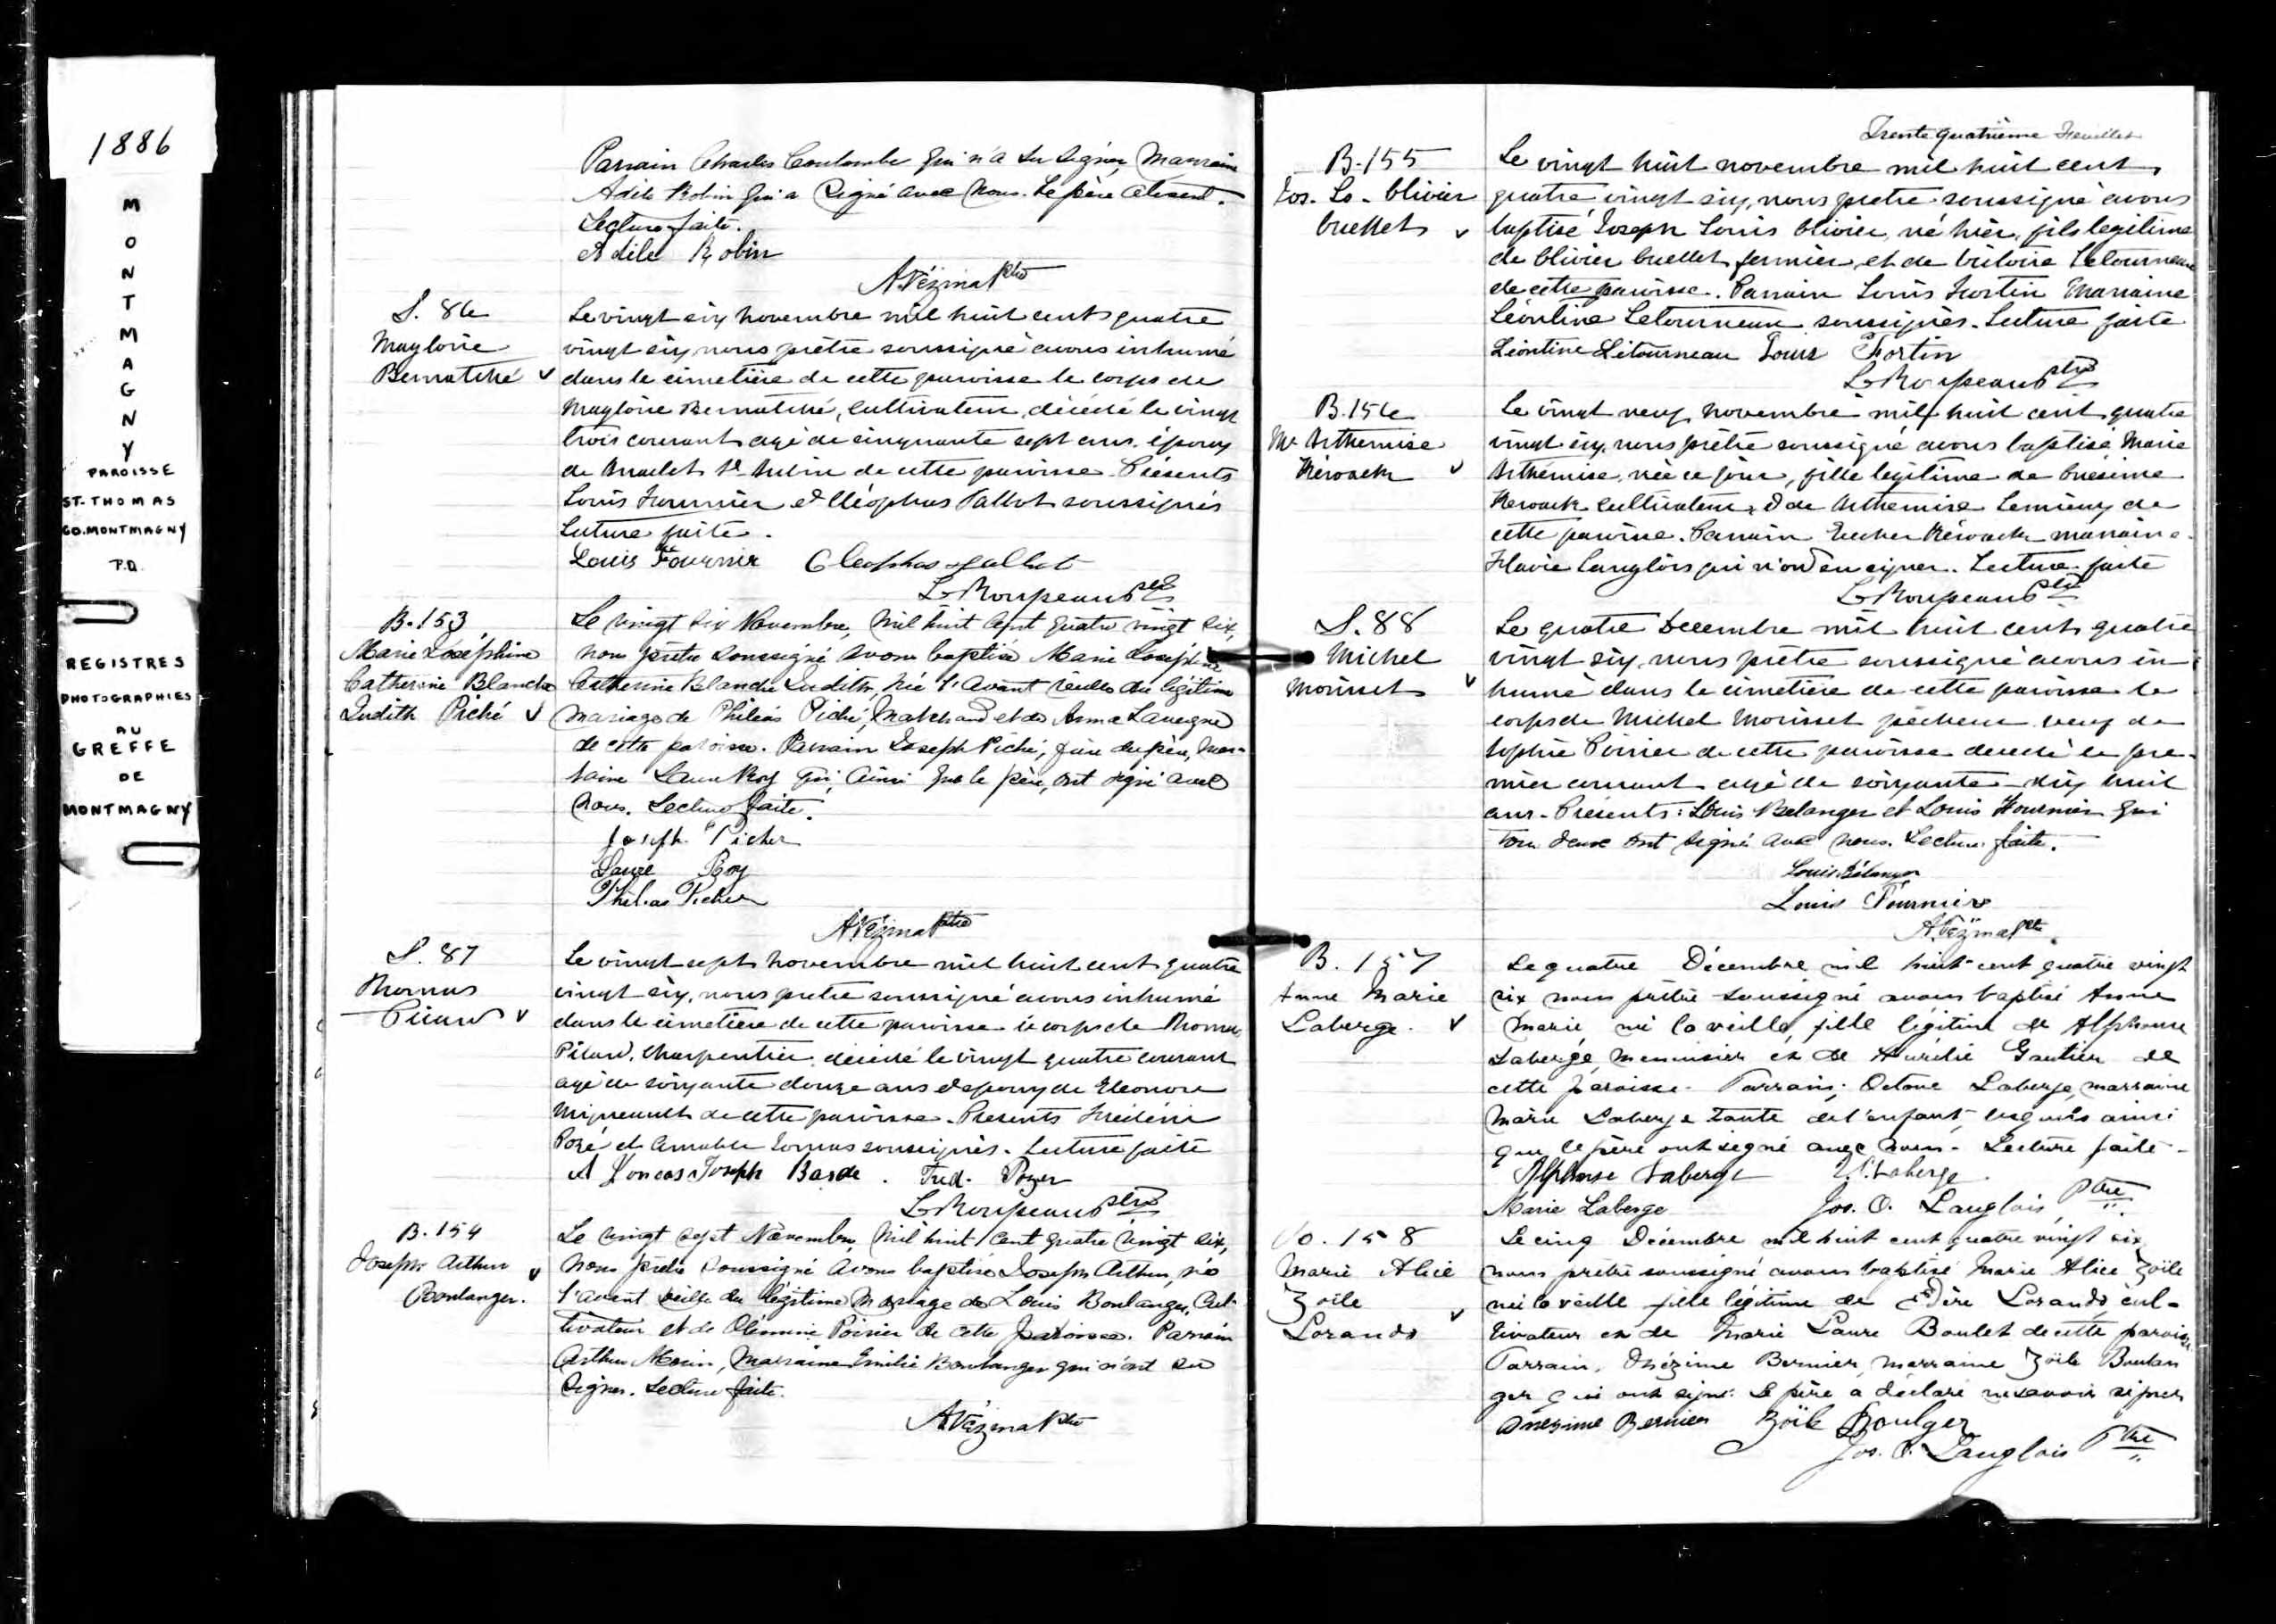 1886
MONTMAGNY
PAROISSE
ST. THOMAS
CO. MONTMAGNY
P.Q.
REGISTRES
PHOTOGRAPHIES
AU
GREFFE
DE
MONTMAGNY
Parrain Charles Coulombe qui n'a su signer, Marraine
Adile Robin qui a signé avec nous. Le père absent.
Lecture faite.
Adile Robin
A. Vézina Ptre
S. 86
Magloire
Bernatché
Le vingt six novembre mil huit cents quatre
vingt six, nous prêtre soussigné avons inhumé
dans le cimetière de cette paroisse le corps de
Magloire Bernatché, cultivateur, décédé le vingt
trois courant agé de cinquante sept ans, époux
de St Aubin de cette paroisse. Présents
Louis Fournier et Cléophas Talbot soussignés
Lecture faite.
Louis Fournier Cleophas Talbot
L. Roupeau Ptre
B. 153
Marie Joséphine
Catherine Blanche
Judith Piché
Le vingt six Novembre, mil huit cent quatre vingt six,
nous prêtre soussigné avons baptisé Marie Joséphine
Catherine Blanche Judith, née l'avant veille du légitime
mariage de Philéas Piché, Marchand et de Anna Lavergne
de cette paroisse. Parrain Joseph Piché, père du père, Mar-
raine Laure Roy qui, ainsi que le père, ont signé avec
nous. Lecture faite.
Joseph Picher
Laure Roy
Philéas Picher
A. Vézina Ptre
S. 87
Thomas
Picard
Le vingt sept novembre mil huit cent quatre
vingt six, nous pretre soussigné avons inhumé
dans le cimetière de cette paroisse le corps de Thomas
Picard, charpentier, décédé le vingt quatre courant
agé de soixante douze ans époux de Eleonore
Migneault de cette paroisse. Présents Frédéric
Pozé et Amable Joncas soussignés. Lecture faite
A Joncas Joseph Basde. Fred. Pozer
L. Roupeau Ptre
B. 154
Joseph Arthur
Boulanger.
Le vingt sept Novembre, mil huit cent quatre vingt six,
nous prêtre soussigné avons baptisé Joseph Arthur, né
l'avant veille du légitime mariage de Louis Boulanger, cul-
tivateur et de Olémine Poirier de cette paroisse. Parrain
Arthur Morin, Marraine Emilie Boulanger qui n'ont su
signer. Lecture faite.
A. Vézina Ptre
Trente quatrième Feuillet
B. 155
Jos. Ls. Olivier
Ouellet
Le vingt huit novembre mil huit cent
quatre vingt six, nous pretre soussigné avons
baptisé Joseph Louis Olivier, né hier, fils legitime
de Olivier Ouellet fermier, et de Victoire Letourneau
de cette paroisse. Parrain Louis Fortin Marraine
Léontine Letourneau soussignés. Lecture faite
Léontine Létourneau Louis Fortin
L. Roupeau Ptre
B. 156
Me Arthemise
Kérouack
Le vingt neuf novembre mil huit cent quatre
vingt six, nous prêtre soussigné avons baptisé Marie
Arthémise, née ce jour, fille legitime de Onésime
Kerouack cultivateur, & de Arthemise Lemieux de
cette paroisse. Parrain Kérouack marraine
Flavie Langlois qui n'ont su signer. Lecture faite
L. Roupeau Ptre
S. 88
Michel
Morisset
Le quatre Decembre mil huit cent quatre
vingt six, nous prêtre soussigné avons in
humé dans le cimetière de cette paroisse le
corps de Michel Morisset pêcheur veuf de
Sophie Poirier de cette paroisse decedé le pre-
mier courant agé de soixante-dix huit
ans. Présents: Louis Belanger et Louis Fournier qui
tous deux ont signé avec nous. Lecture faite.
Louis Bélanger
Louis Fournier
A. Vézina Ptre
B. 157
Anne Marie
Laberge.
Le quatre Décembre mil huit-cent quatre vingt
six nous prêtre soussigné avons baptisé Anne
Marie, née la veille, fille légitime de Alphonse
Laberge, menuisier et de Aurélie Gautier de
cette paroisse. Parrain; Octave Laberge, marraine
Marie Laberge tante de l'enfant, lesquels ainsi
que le père ont signé avec nous. Lecture faite.
Alphonse Laberge O. Laberge
Marie Laberge Jos. O. Langlois, Ptre
B. 158
Marie Alice
Zoïle
Lorando
Le cinq Décembre mil huit cent quatre vingt six
nous prêtre soussigné avons baptisé Marie Alice Zoïle
née la veille fille légitime de Lorando cul-
tivateur et de Marie Laure Boulet de cette paroisse
Parrain, Onézime Bernier, marraine Zoïle Boulan
ger qui ont signé. Le père a déclaré ne savoir signer
Onesime Bernier Zoïle Boulger
Jos. O. Langlois Ptre